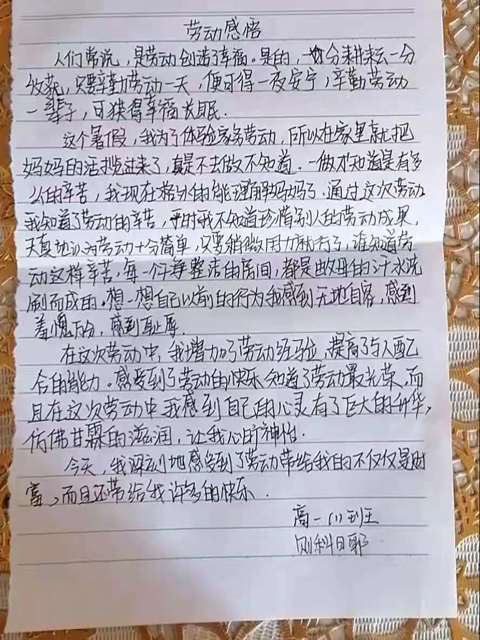 劳动感悟
人们常说，是劳动创造了幸福。是的，一分耕耘一分
收获，只要辛勤劳动一天，便可得一夜安宁，辛勤劳动
一辈子，可获得幸福长眠。
这个暑假，我为了体验家务劳动，所以在家里就把
妈妈的活揽过来了，真是不去做不知道，一做才知道是有多
么的辛苦，我现在格外的能理解妈妈了，通过这次劳动
我知道了劳动的辛苦，平时我不知道珍惜别人的劳动成果，
天真地认为劳动十分简单，只要稍微用力就行了，谁知道劳
动这样辛苦，每一个干净整洁的房间，都是父母的汗水洗
刷而成的，想一想自己以前的行为我感到无地自容，感到
羞愧万分，感到耻辱。
在这次劳动中，我增加了劳动经验，提高了与人配
合的能力。感受到了劳动的快乐，知道了劳动最光荣，而
且在这次劳动中我感到自己的心灵有了巨大的升华，
仿佛甘霖的滋润，让我心旷神怡。
今天，我深刻地感受到了劳动带给我的不仅仅是财
富，而且还带给我许多的快乐．
高一(1)班
则科日耶